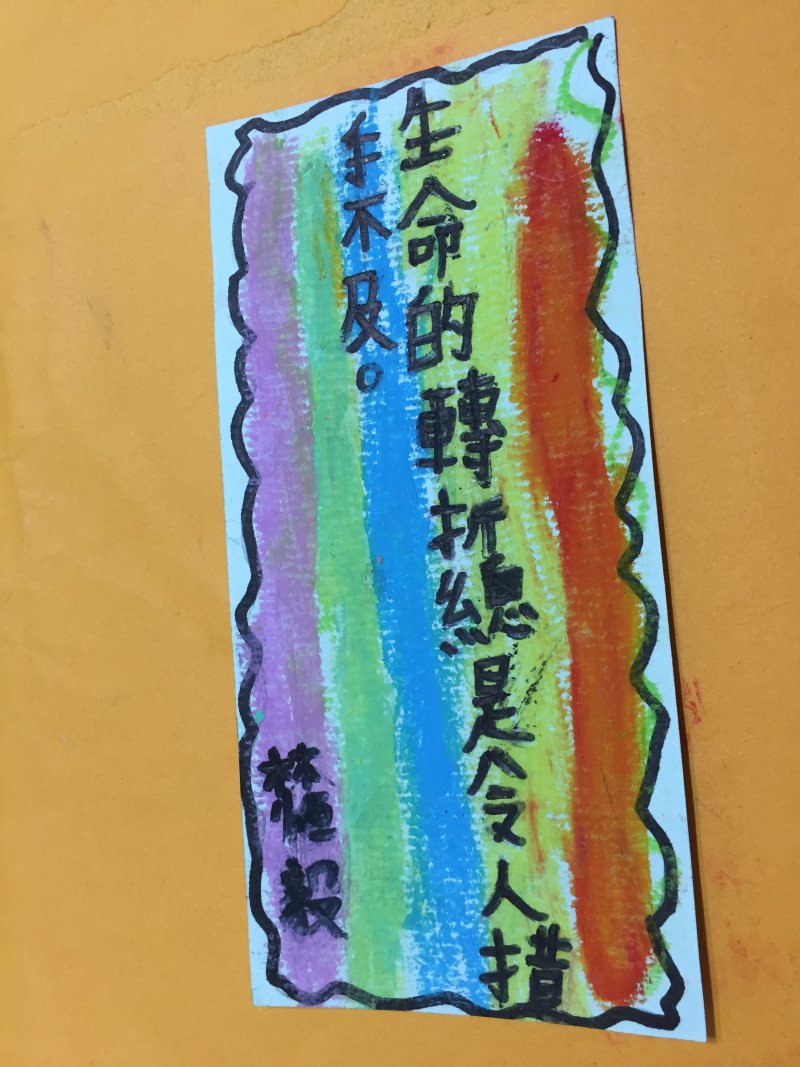 生命的轉折總是令人措
手不及。
林恒毅